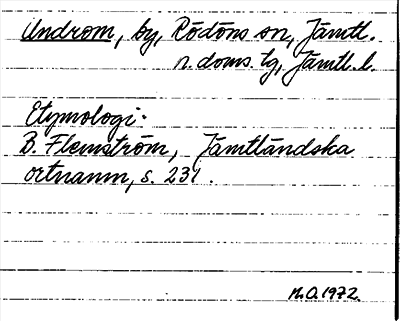 Undrom, by, Rödöns sn, Jämtl.
n. doms. tg, Jämtl. l.
Etymologi:
B. Flemström, Jämtländska
ortnamn, s. 231.
M.O. 1972